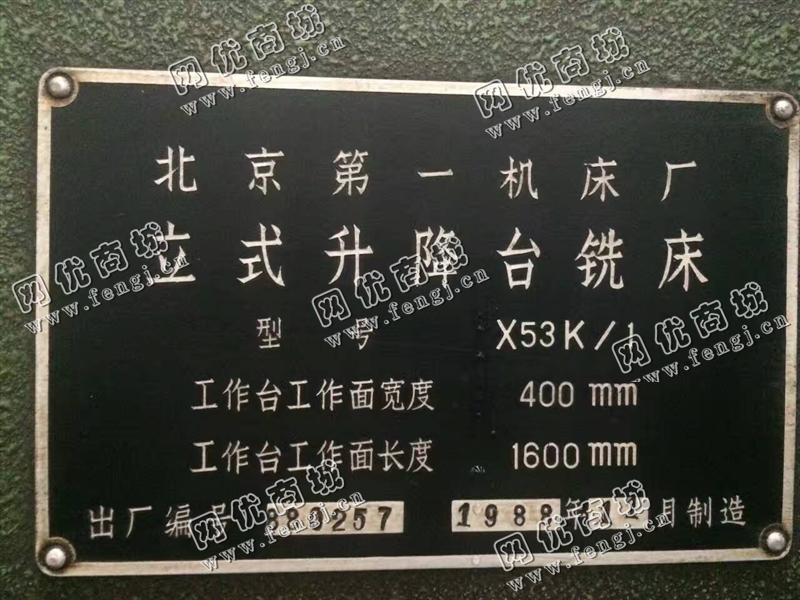 北京第一机床厂
立式升降台铣床
型号 X53K/1
工作台工作面宽度 400 mm
工作台工作面长度 1600 mm
出厂编号 880257 1988年 月制造
网优商城
www.fengj.cn
网优商城
www.fengj.cn
网优商城
www.fengj.cn
网优商城
www.fengj.cn
网优商城
www.fengj.cn
网优商城
www.fengj.cn
网优商城
www.fengj.cn
网优商城
www.fengj.cn